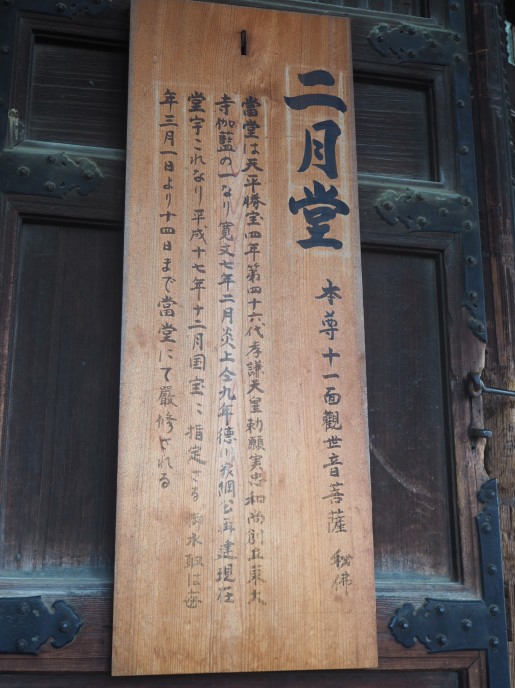 二月堂
本尊十一面觀世音菩薩 秘佛
當堂は天平勝宝四年第四十六代孝謙天皇勅願実忠和尚創立東大
寺伽藍の一なり寛文七年二月炎上仝九年徳川家綱公再建現在
堂宇これなり平成十七年十二月国宝に指定さる御水取は毎
年三月一日より十四日まで當堂にて嚴修される